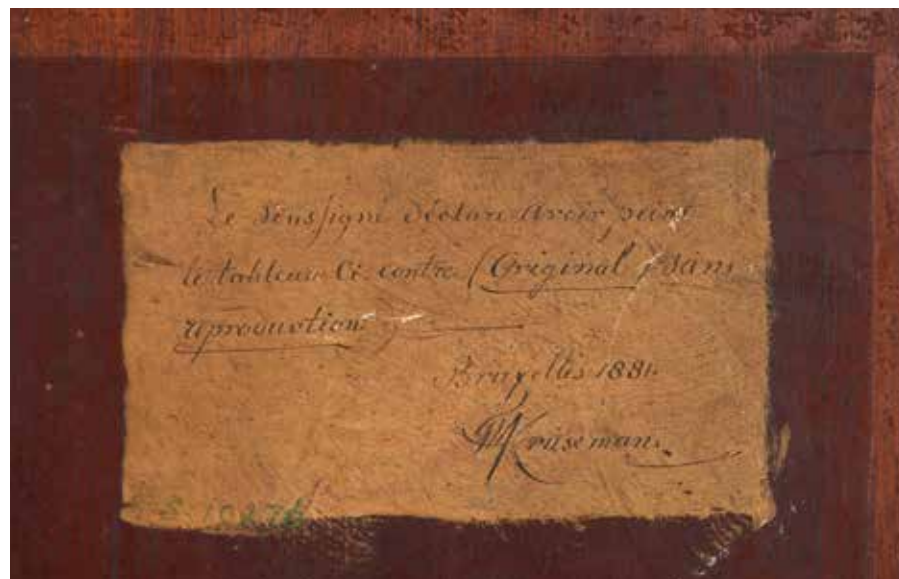 Le Soussigné déclare Avoir peint
le tableau Ci-contre (Original, sans
reproduction.
Bruxelles 1881.
Kruseman.